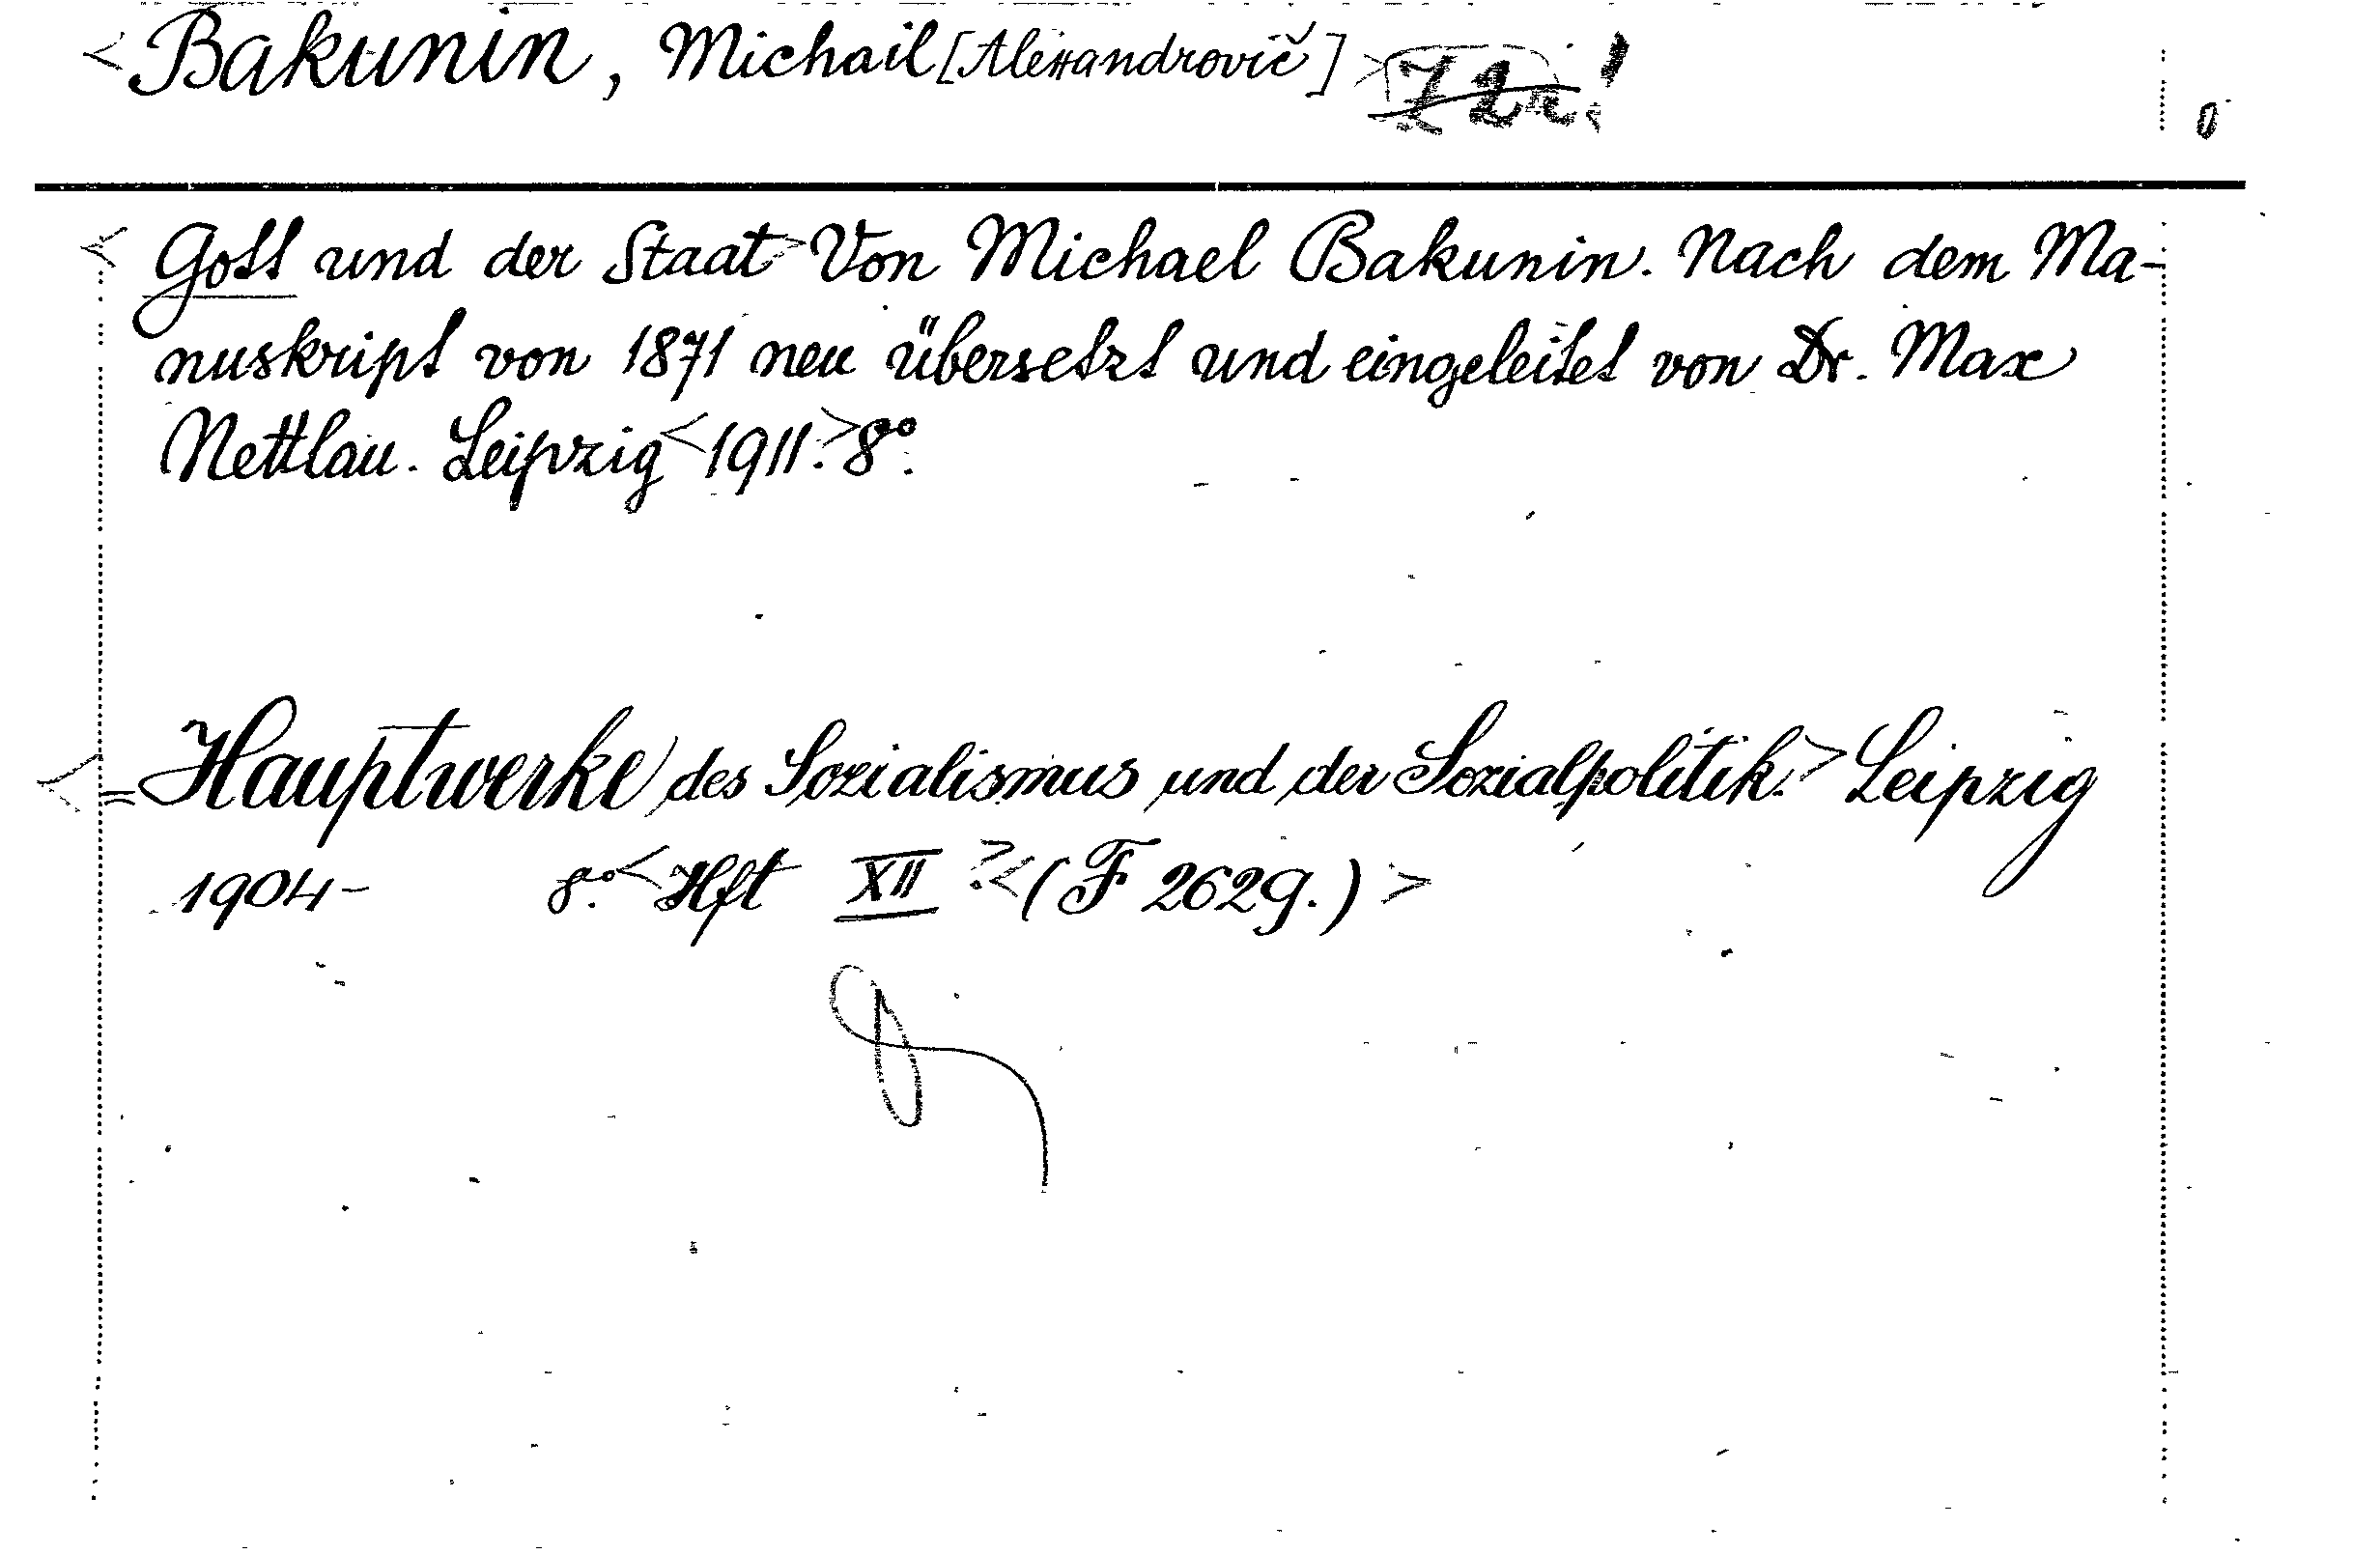 <Bakunin, Michail [Alexandrovič]>
<Gott und der Staat> Von Michael Bakunin. Nach dem Ma-
nuskript von 1871 neu übersetzt und eingeleitet von Dr. Max
Nettlau. Leipzig <1911.> 8°.
<= Hauptwerke des Sozialismus und der Sozialpolitik.> Leipzig
1904- 8°. <Hft XII> <(F 2629.)>